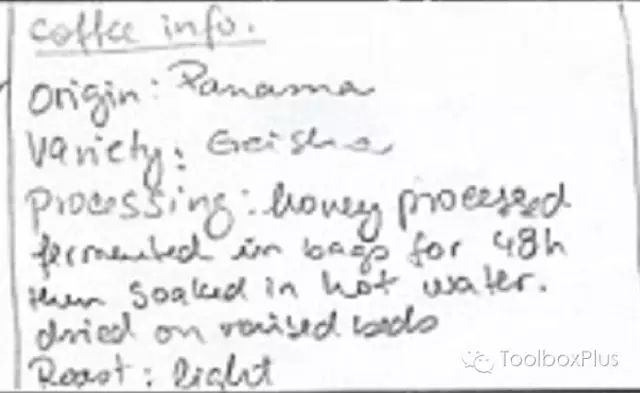 coffee info.
origin: Panama
Variety: Geisha
processing: honey processed
fermented in bags for 48h
then soaked in hot water.
dried on raised beds
Roast: light
ToolboxPlus